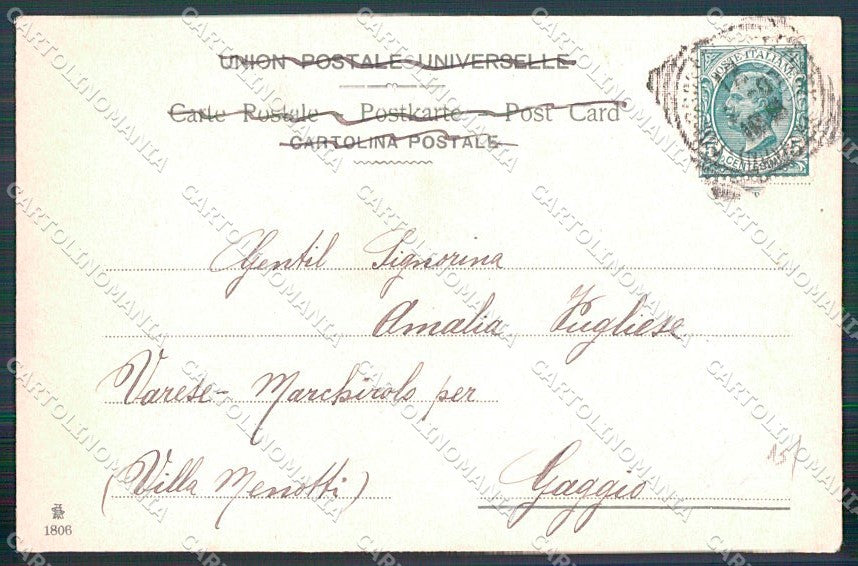 UNION POSTALE UNIVERSELLE
Carte Postale Postkarte Post Card
CARTOLINA POSTALE
POSTE ITALIANE
CENTESIMI 5
Gentil Signorina
Amalia Pugliese
Varese - Marchirolo per
(Villa Menotti) Gaggio
15/
1806
CARTOLINOMANIA